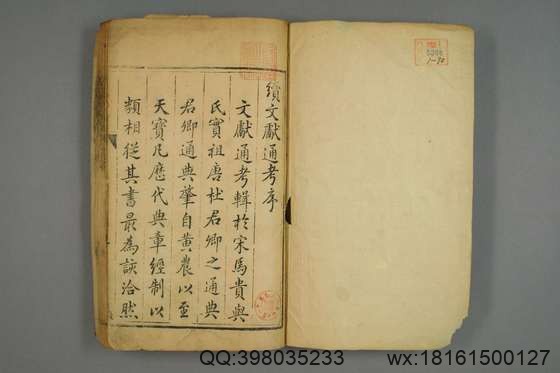 續文獻通考序
文獻通考輯於宋馬貴與
氏實祖唐杜君卿之通典
君卿通典肇自黃農以至
天寶凡歷代典章經制以
類相從其書最為該洽然
QQ:398035233
wx:18161500127